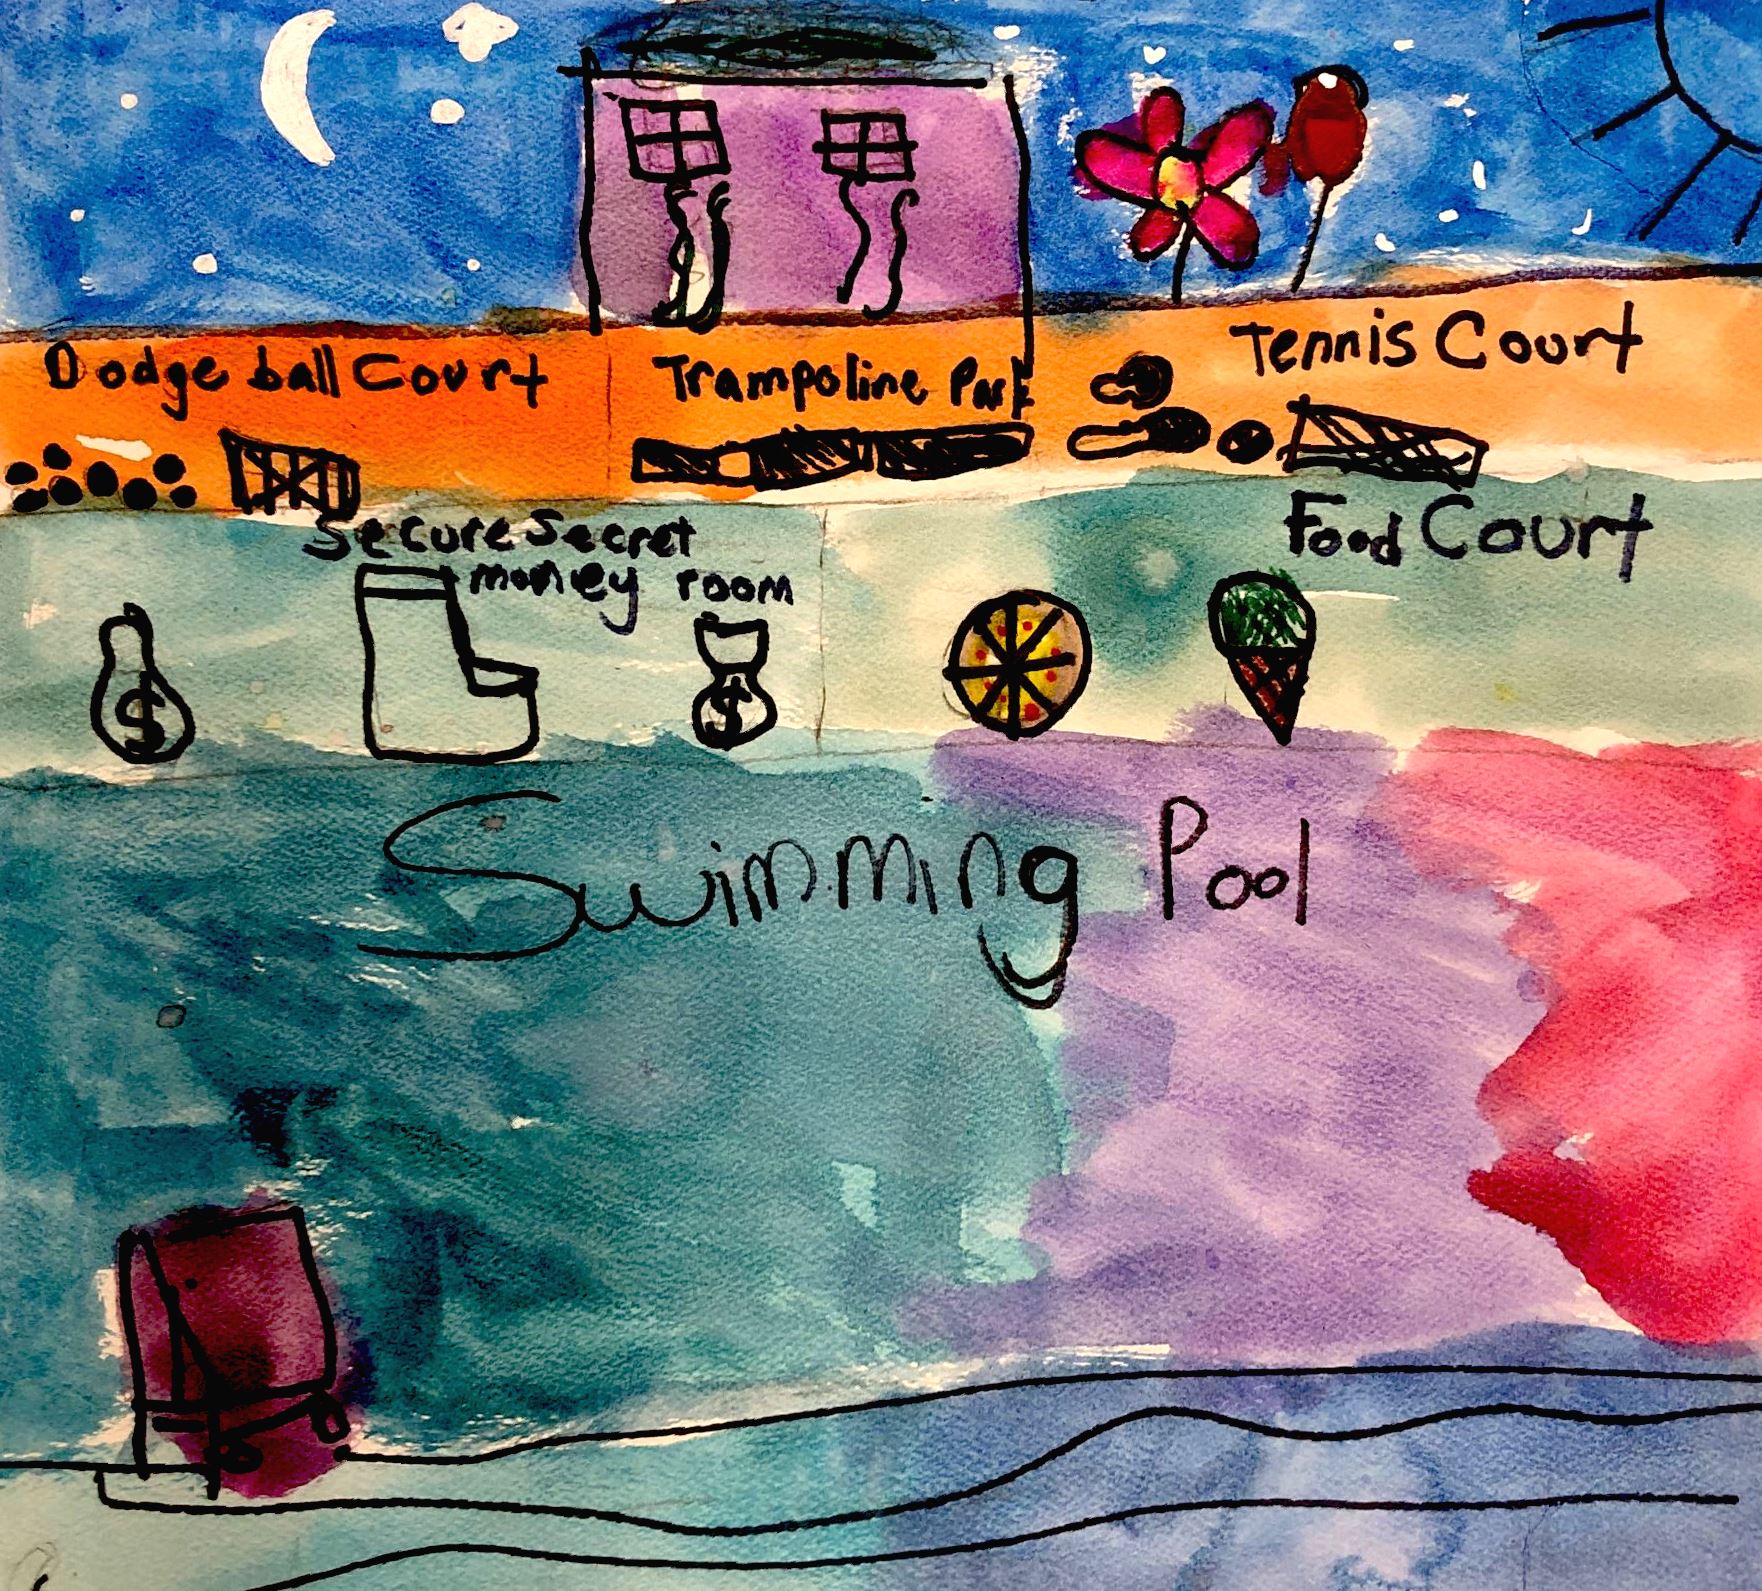 Dodge ball Court
Trampoline Park
Tennis Court
Secure Secret
money room
Food Court
$
$
Swimming Pool